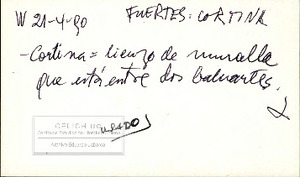 W 21-4-90 FUERTES: CORTINA
-Cortina = lienzo de muralla
que está entre dos baluartes.